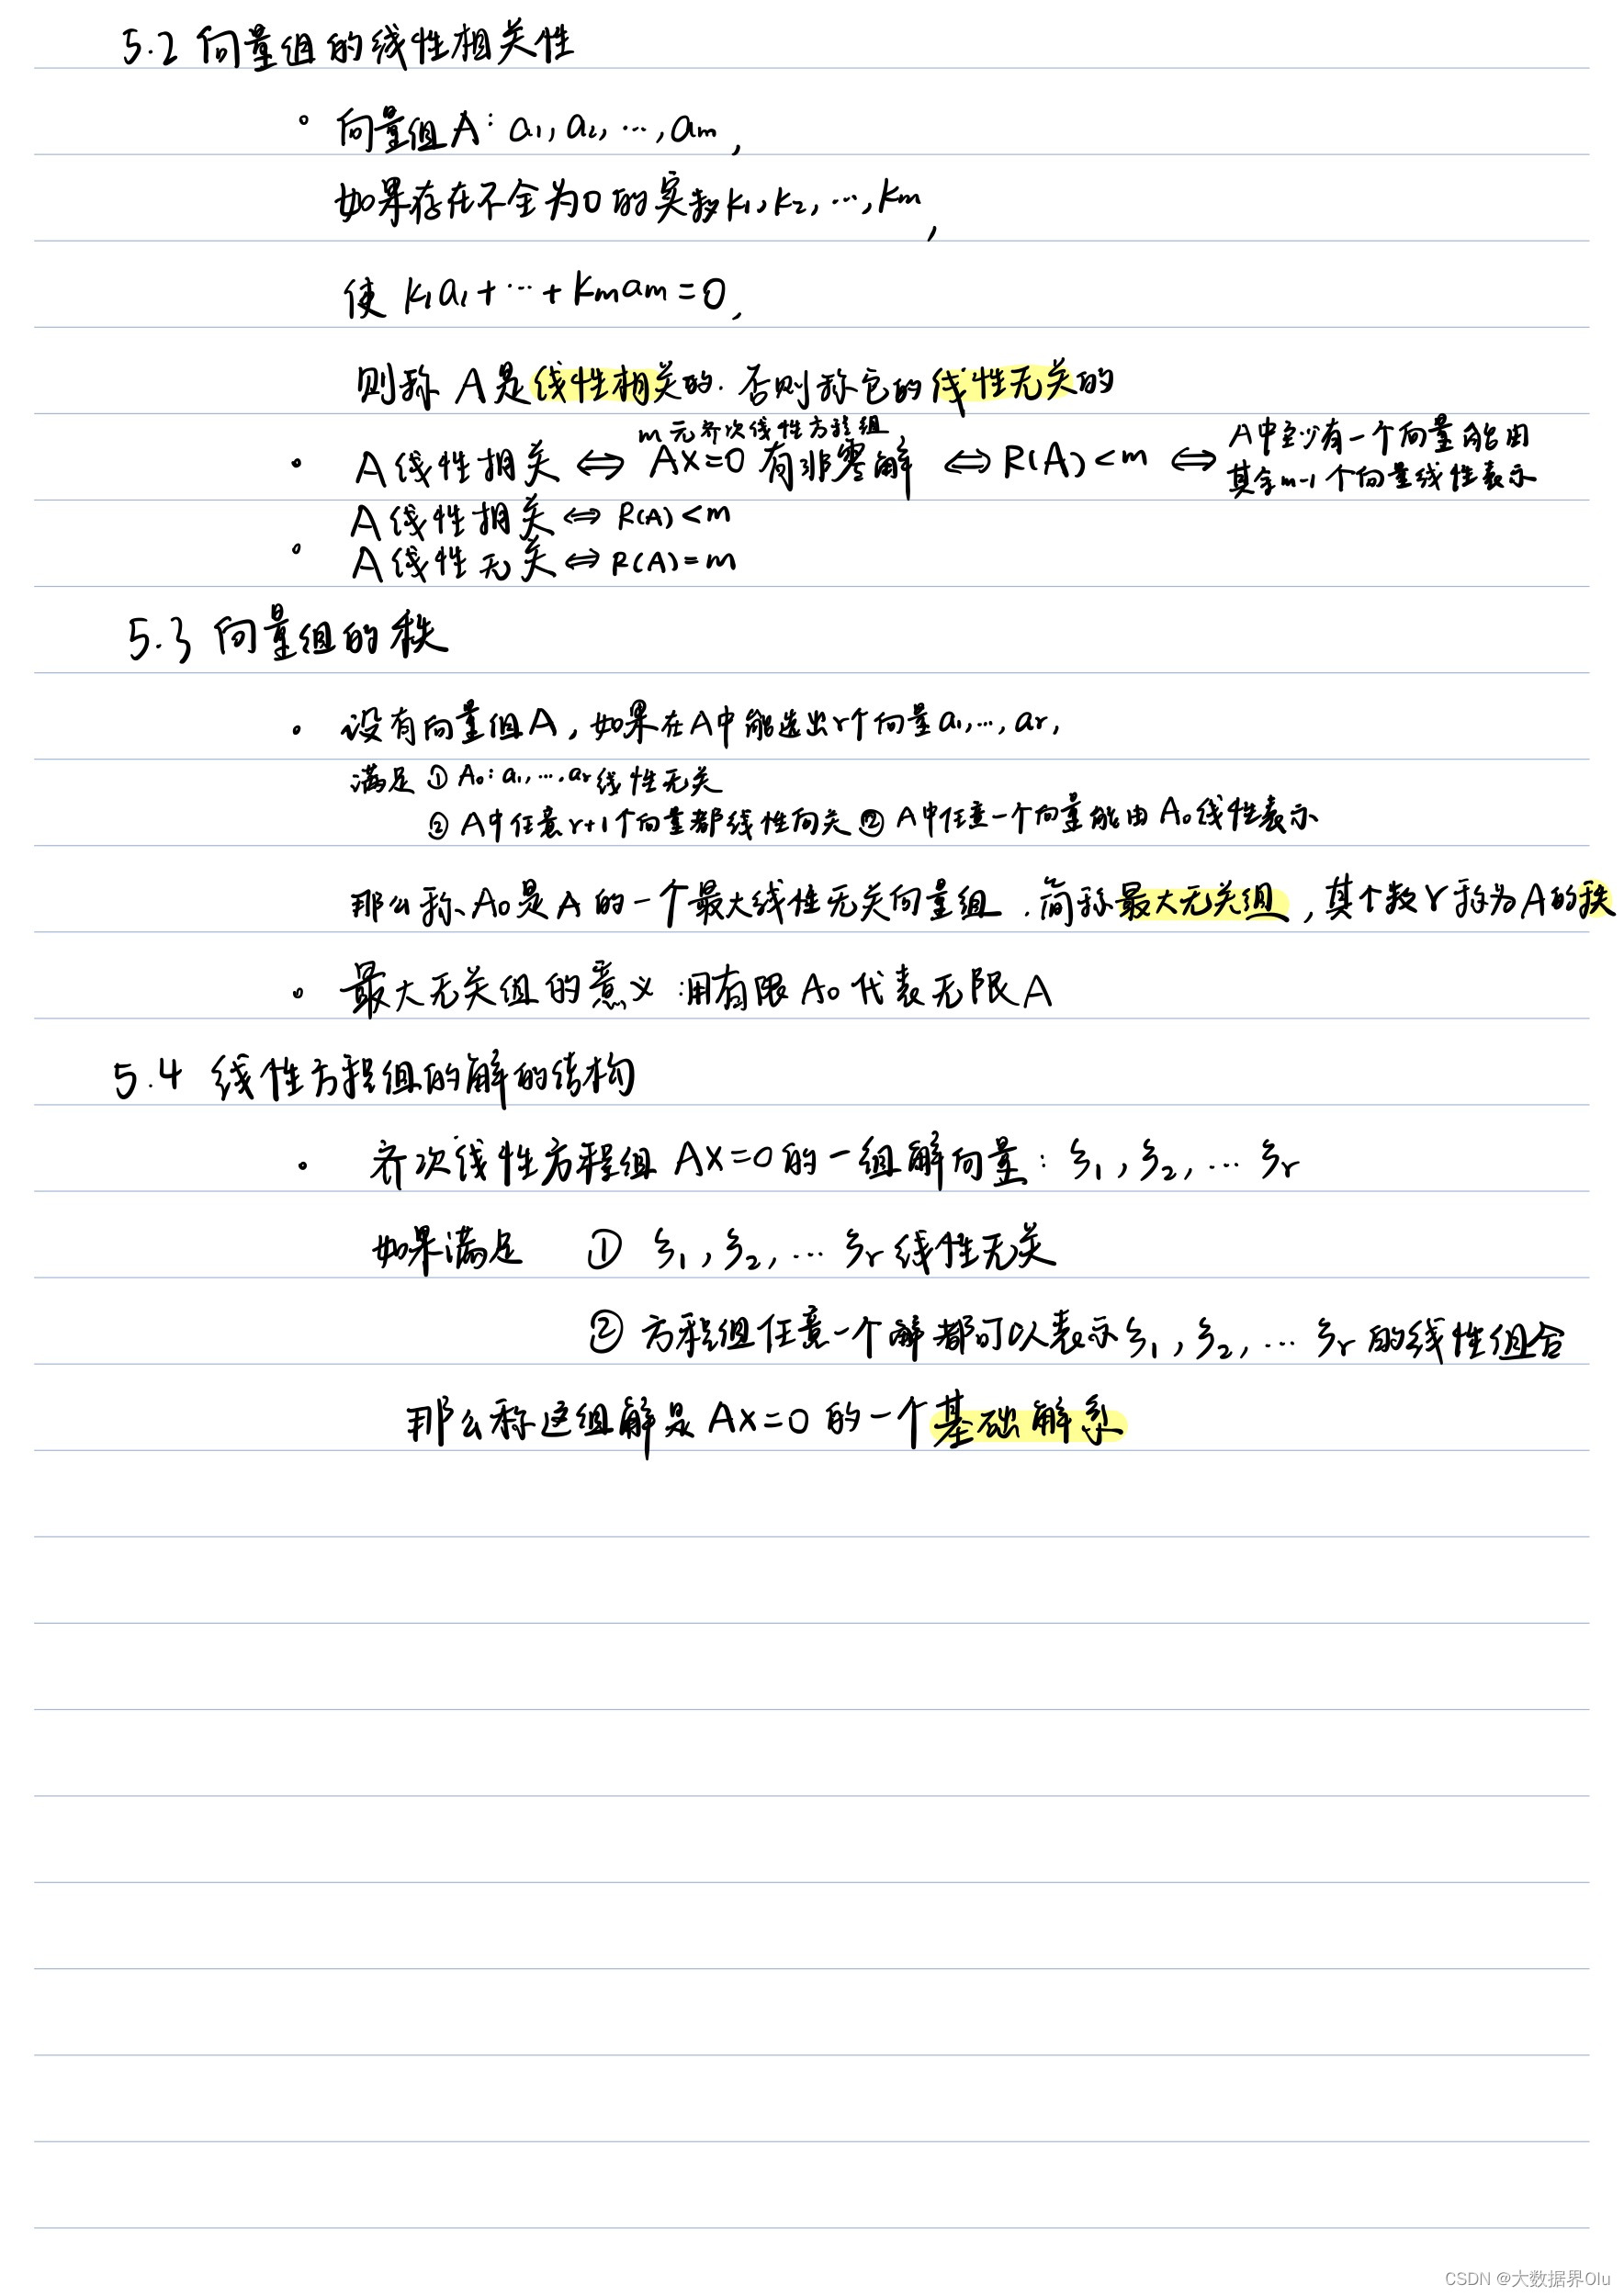 5.2 向量组的线性相关性
。向量组A：a1, a2, …, am,
如果存在不全为0的实数k1, k2, …, km,
使 k1a1+…+kmam=0,
则称 A是线性相关的. 否则称它的线性无关的
m元齐次线性方程组
A中至少有一个向量能由
。A线性相关 ⇔ Ax=0 有非零解 ⇔ R(A)<m ⇔ 其余m-1个向量线性表示
A线性相关 ⇔ R(A)<m
。A线性无关 ⇔ R(A)=m
5.3 向量组的秩
。设有向量组A, 如果在A中能选出r个向量a1, …, ar,
满足 ① A0: a1, …, ar线性无关
② A中任意r+1个向量都线性向关 ② A中任意一个向量能由A0线性表示
那么称A0是A的一个最大线性无关向量组. 简称最大无关组, 其个数r称为A的秩
。最大无关组的意义:用有限A0代表无限A
5.4 线性方程组的解的结构
. 齐次线性方程组Ax=0的一组解向量: ξ1, ξ2, … ξr
如果满足 ① ξ1, ξ2, … ξr线性无关
② 方程组任意一个解都可以表示ξ1, ξ2, … ξr的线性组合
那么称这组解是Ax=0的一个基础解系
CSDN @大数据界Olu